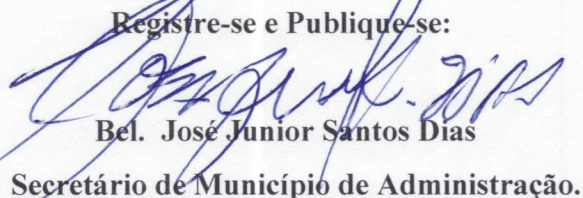 Registre-se e Publique-se:
Bel. José Junior Santos Dias
Secretário de Município de Administração.